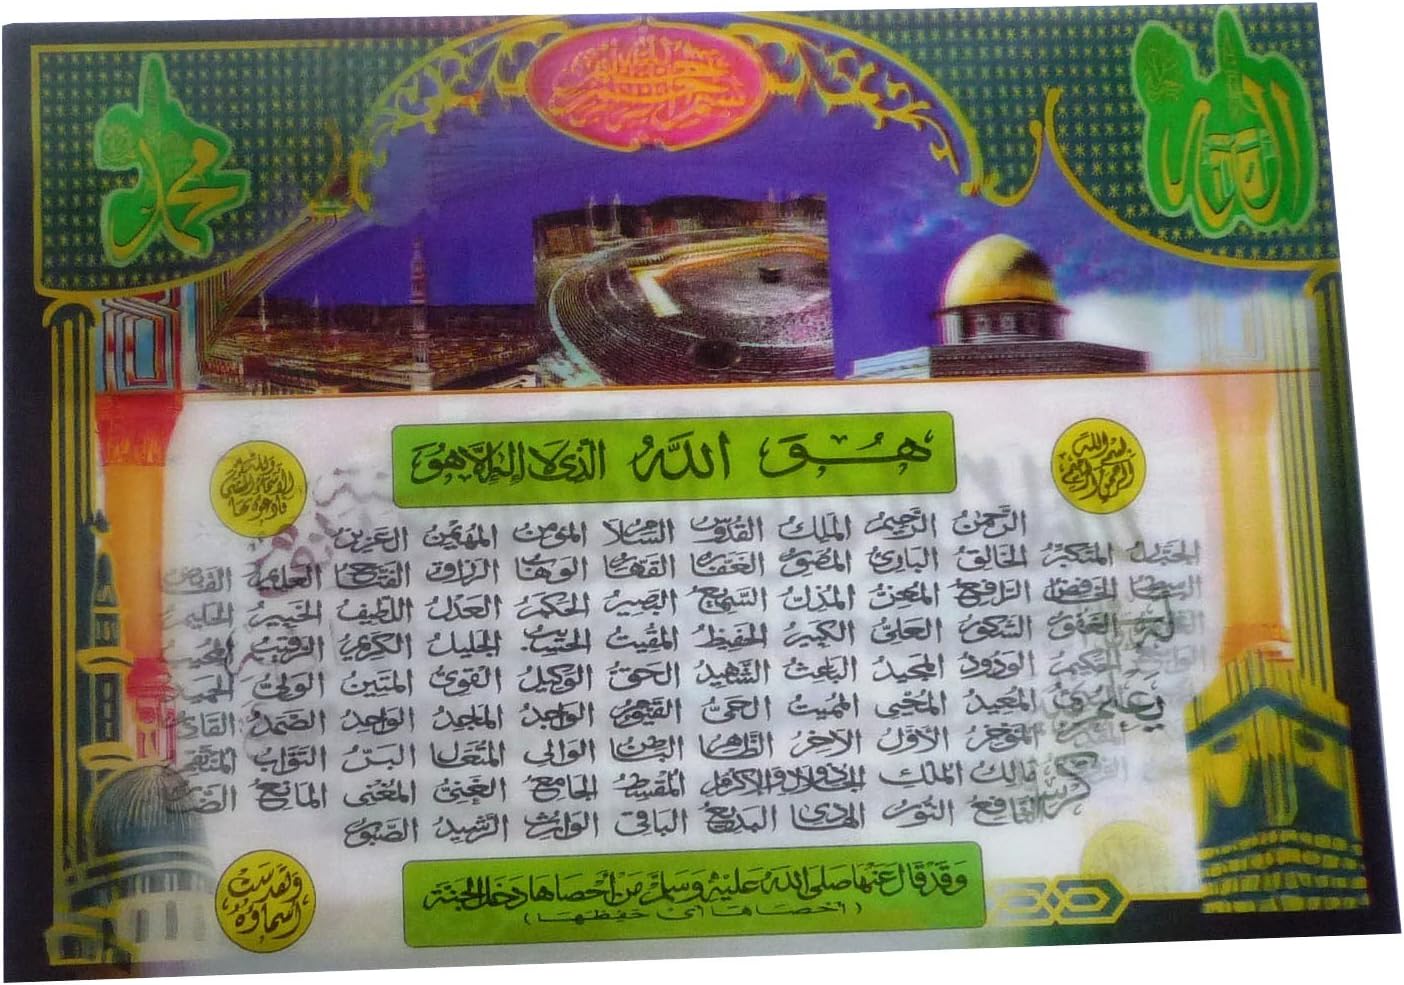 الله
محمد
بسم الله الرحمن الرحيم
هُوَ اللَّهُ الذى لا إله إلا هو
بسم الله الرحمن الرحيم
ولله الأسماء الحسنى فادعوه بها
الرحمن الرحيم الملك القدوس السلام المؤمن المهيمن العزيز
الجبار المتكبر الخالق البارئ المصور الغفار القهار الوهاب الرزاق الفتاح العليم القابض
الباسط الخافض الرافع المعز المذل السميع البصير الحكم العدل اللطيف الخبير الحليم
الغفور الشكور العلى الكبير الحفيظ المقيت الحسيب الجليل الكريم الرقيب المجيب
الواسع الحكيم الودود المجيد الباعث الشهيد الحق الوكيل القوى المتين الولى الحميد
المعيد المحيى المميت الحى القيوم الواجد الماجد الواحد الصمد القادر
المؤخر الأول الآخر الظاهر الباطن الوالى المتعال البر التواب المنتقم
مالك الملك ذو الجلال والإكرام المقسط الجامع الغنى المغنى المانع الضار
النافع النور الهادى البديع الباقى الوارث الرشيد الصبور
وتقدست أسماؤه
وقد قال عنها صلى الله عليه وسلم من أحصاها دخل الجنة
(أحصاها أى حفظها)